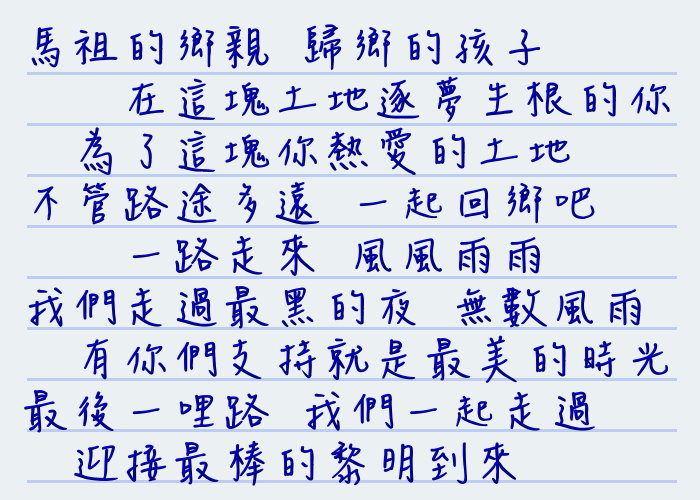 馬祖的鄉親 歸鄉的孩子
在這塊土地逐夢生根的你
為了這塊你熱愛的土地
不管路途多遠 一起回鄉吧
一路走來 風風雨雨
我們走過最黑的夜 無數風雨
有你們支持就是最美的時光
最後一哩路 我們一起走過
迎接最棒的黎明到來